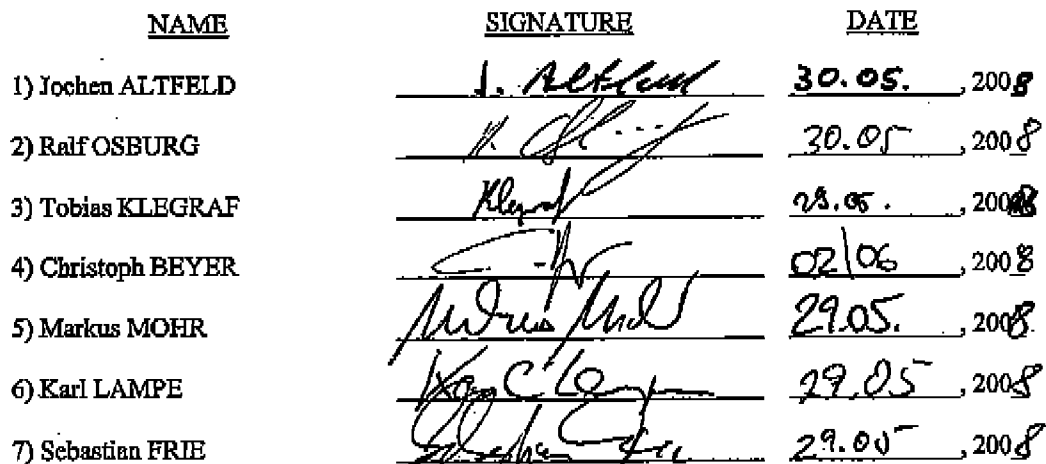 NAME SIGNATURE DATE
1) Jochen ALTFELD J. Altfeld 30.05. , 2008
2) Ralf OSBURG 30.05 , 2008
3) Tobias KLEGRAF Klegraf 29.05. , 2008
4) Christoph BEYER 02/06 , 2008
5) Markus MOHR Markus Mohr 29.05. , 2008
6) Karl LAMPE 29.05 , 2008
7) Sebastian FRIE Sebastian Frie 29.05 , 2008